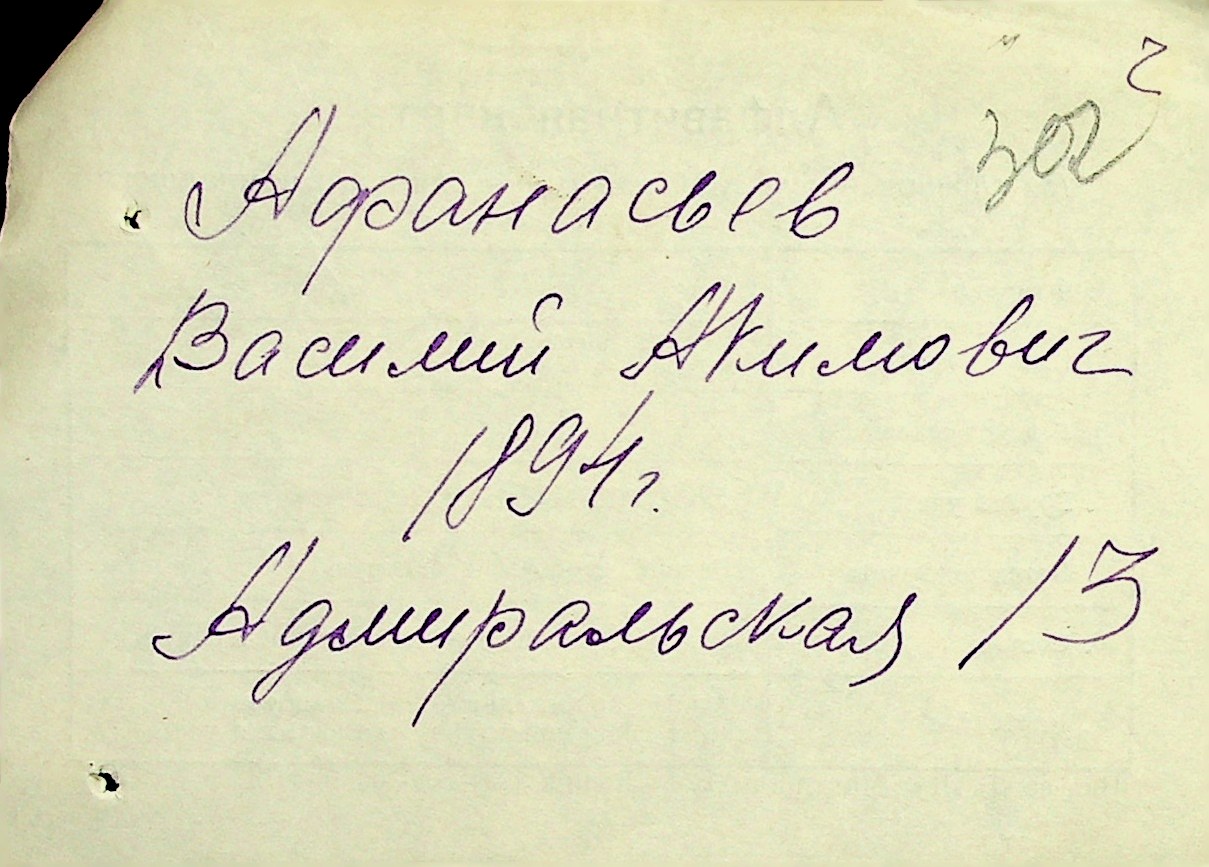 302
Афанасьев
Василий Акимович
1894г.
Адмиральская 13